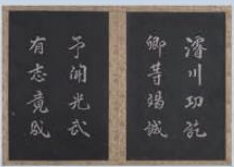 濬川功
卿等竭誠
予聞光武
有志竟成